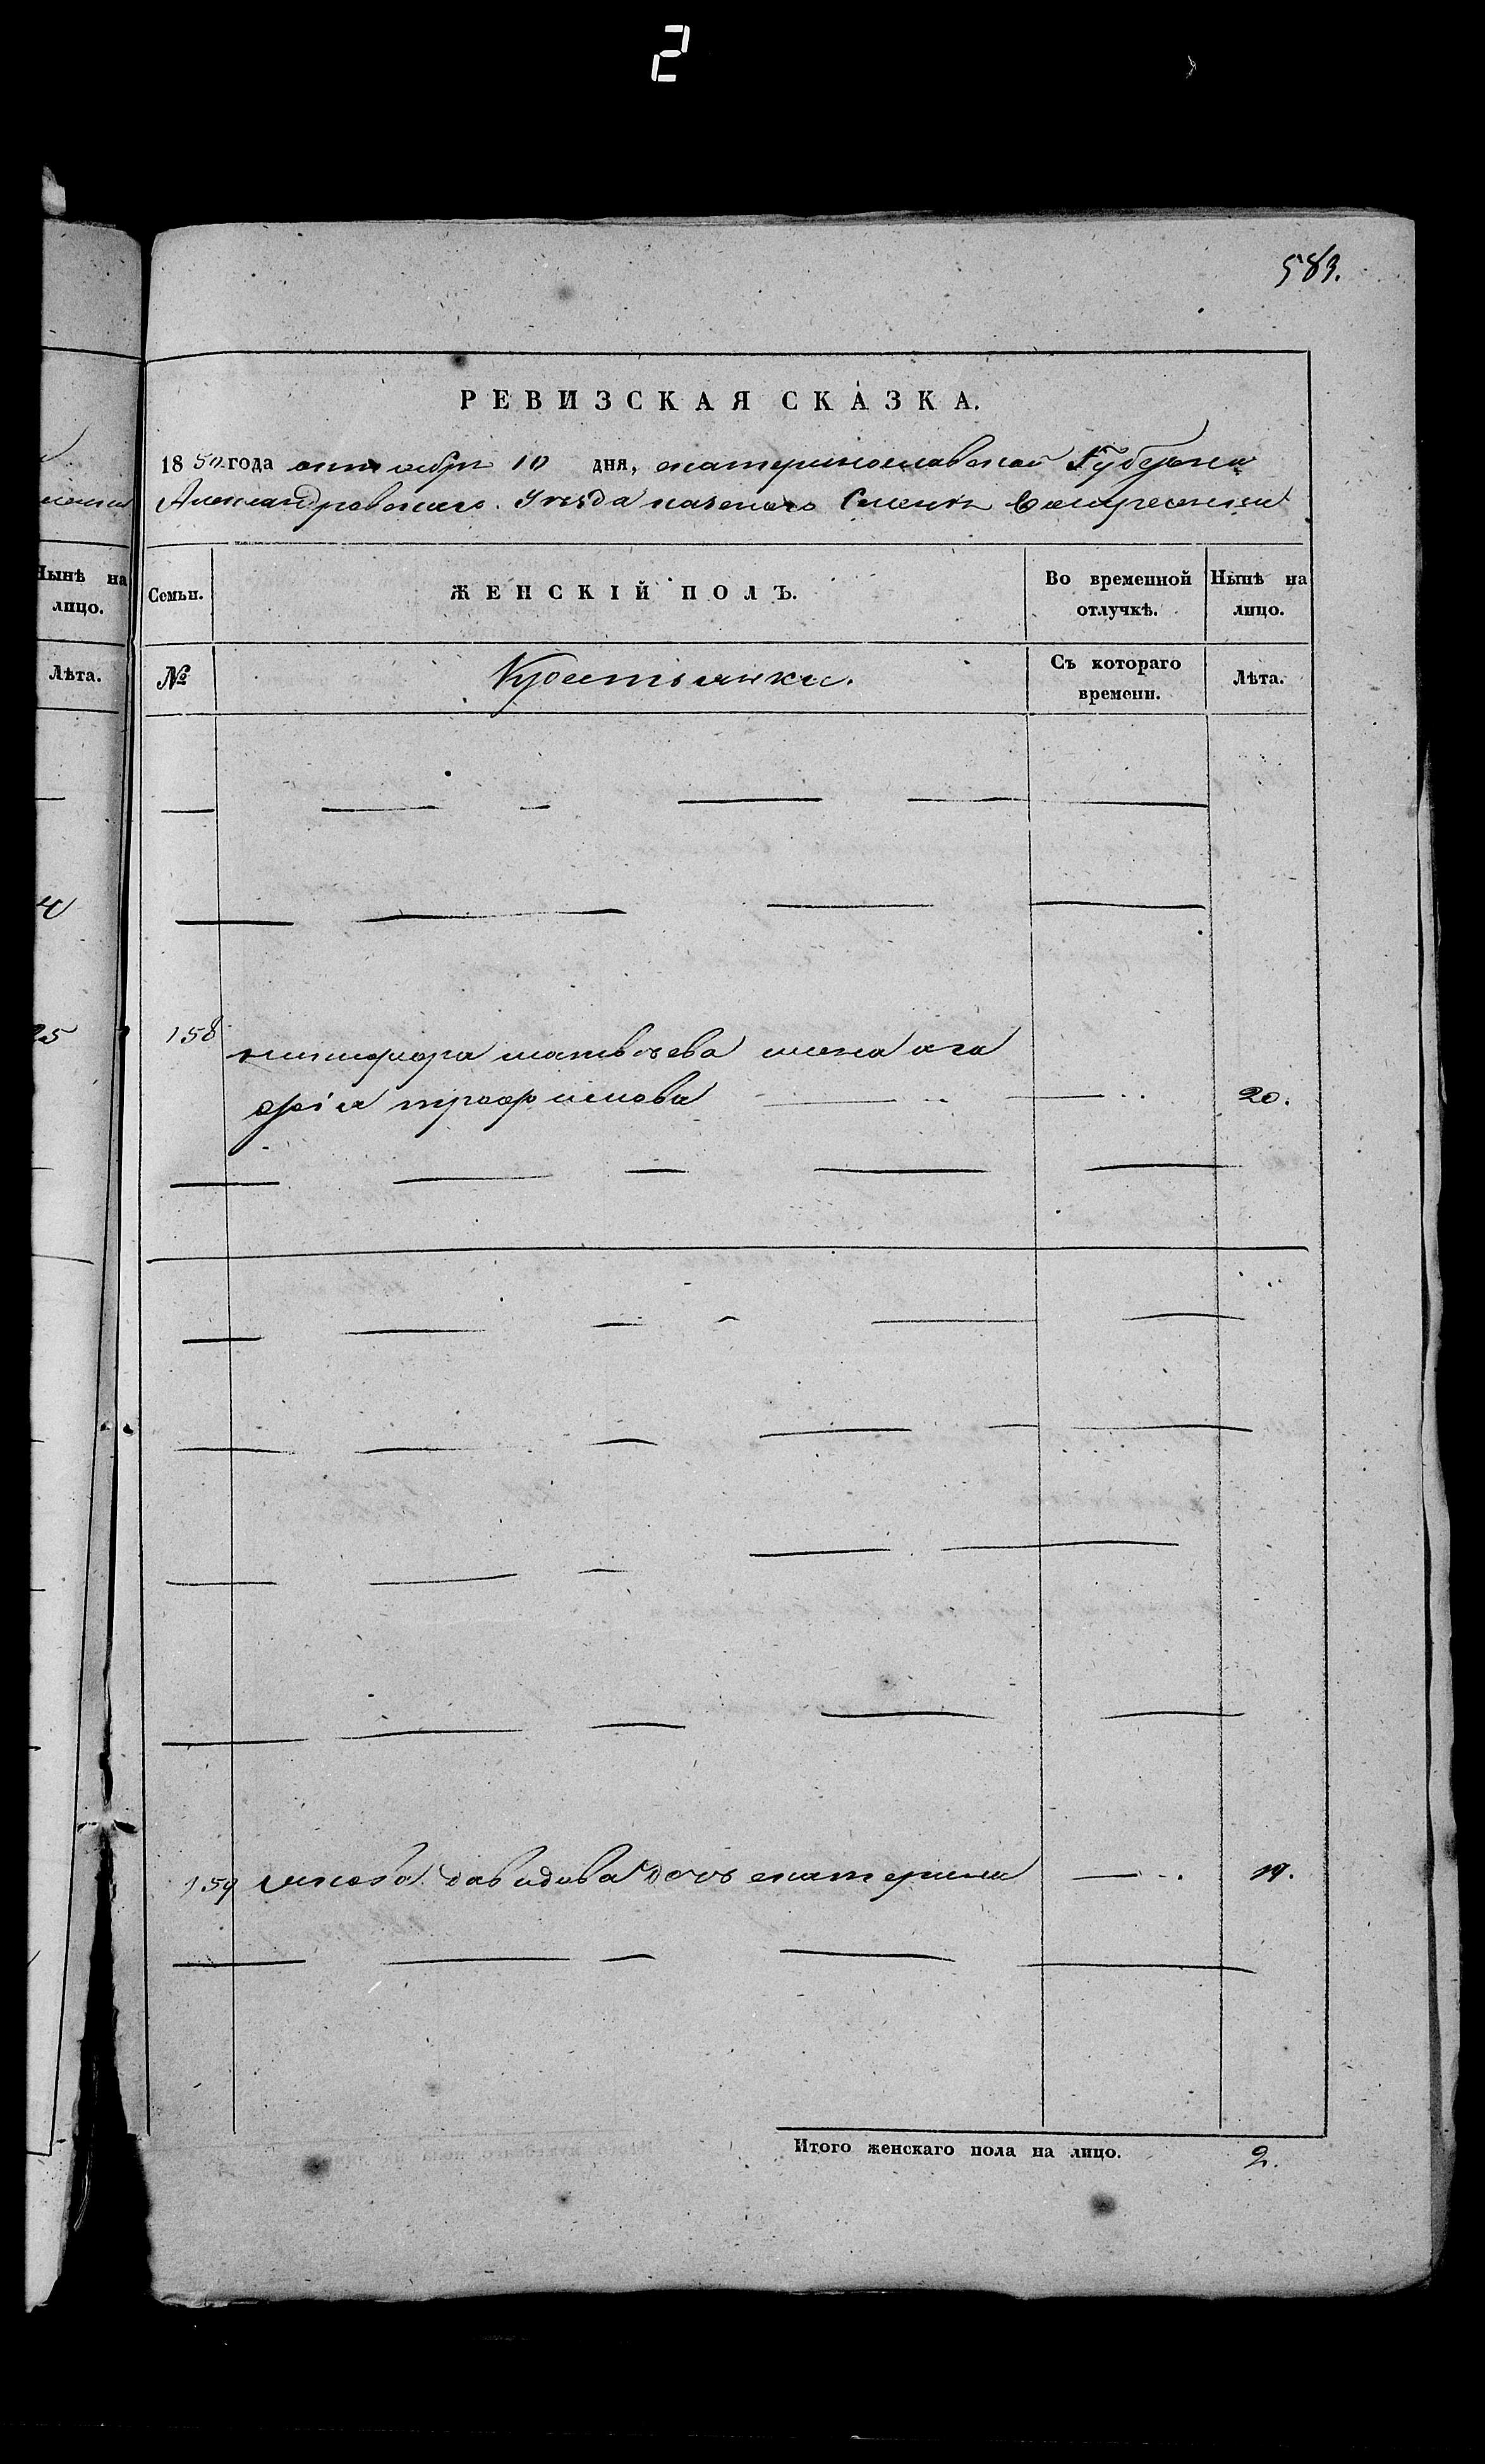 2
583.
РЕВИЗСКАЯ СКАЗКА.
1850 года октября 10 дня, екатеринославской Губерніи
Александровскаго Уѣзда казеннаго Селенія Воскресенки
Нынѣ на
лицо.
Лѣта.
4
25
Семьи. ЖЕНСКІЙ ПОЛЪ. Во временной отлучкѣ. Нынѣ на лицо.
№ Крестьянки. Съ котораго времени. Лѣта.
158 никифора матвѣева жена ага
фія трофимова 20.
159 якова давидова дочь екатерина 19.
Итого женскаго пола на лицо. 2.